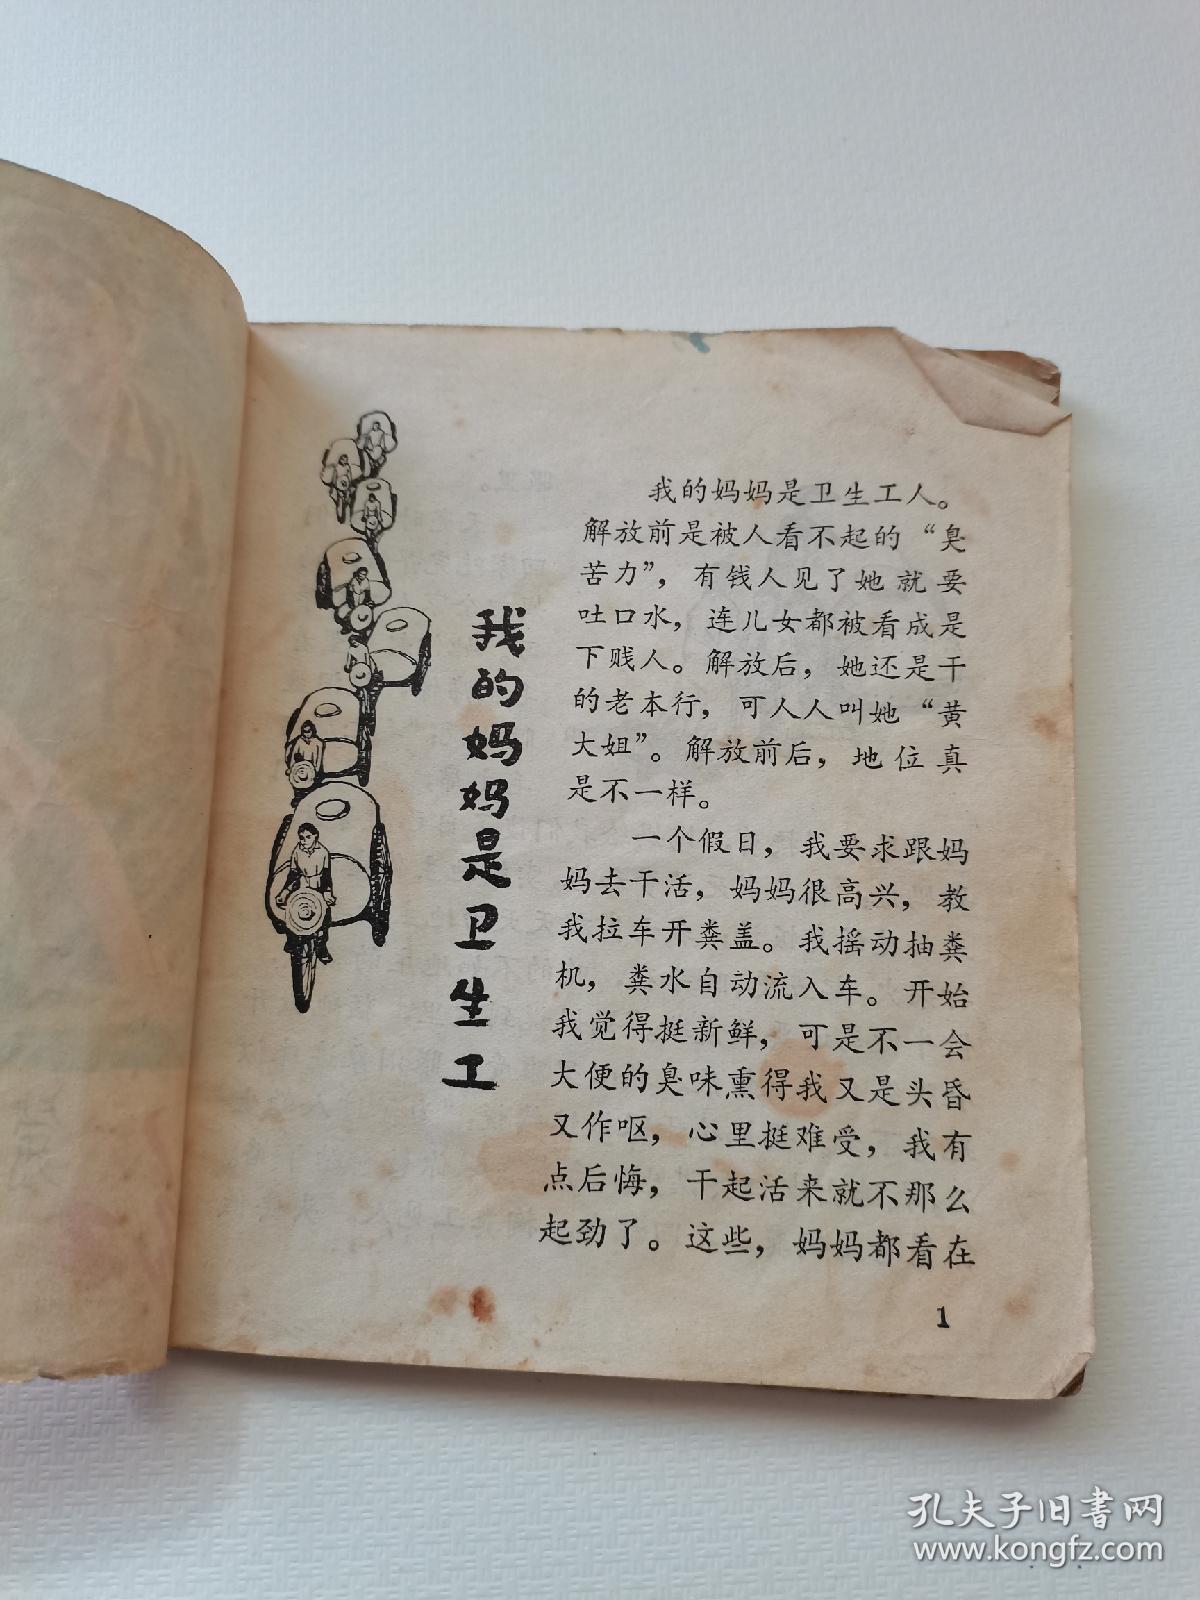 我的妈妈是卫生工
我的妈妈是卫生工人。
解放前是被人看不起的“臭
苦力”，有钱人见了她就要
吐口水，连儿女都被看成是
下贱人。解放后，她还是干
的老本行，可人人叫她“黄
大姐”。解放前后，地位真
是不一样。
一个假日，我要求跟妈
妈去干活，妈妈很高兴，教
我拉车开粪盖。我摇动抽粪
机，粪水自动流入车。开始
我觉得挺新鲜，可是不一会
大便的臭味熏得我又是头昏
又作呕，心里挺难受，我有
点后悔，干起活来就不那么
起劲了。这些，妈妈都看在
1
孔夫子旧书网
www.kongfz.com